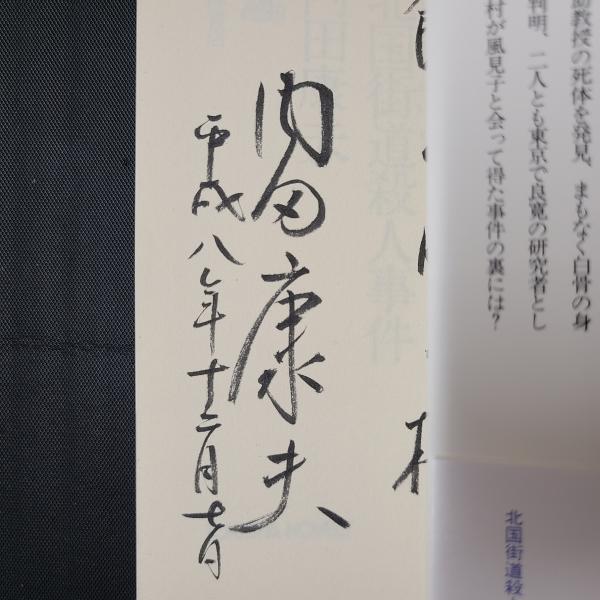 助教授の死体を発見、まもなく白骨の身
判明、二人とも東京で良寛の研究者とし
村が風見子と会って得た事件の裏には？
北国街道殺
様
内田康夫
平成八年十二月七日
北国街道殺人事件